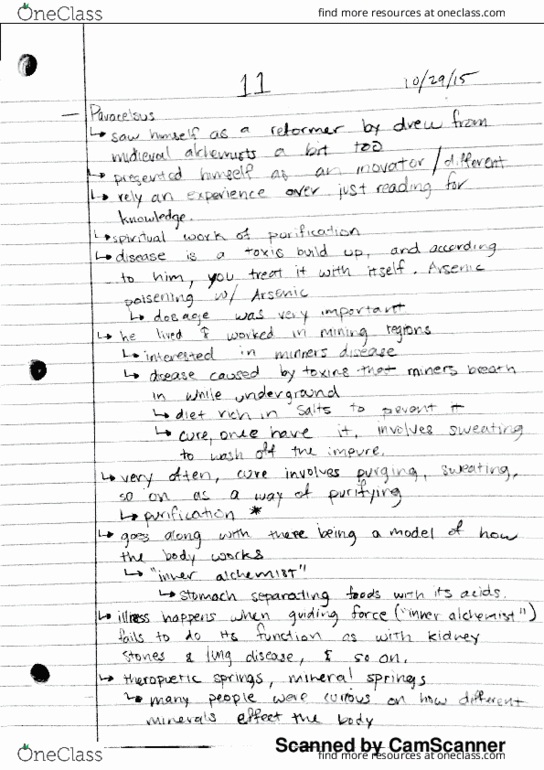 OneClass
find more resources at oneclass.com
11
10/29/15
— Paracelsus
↳ saw himself as a reformer by drew from
medieval alchemists a bit too
↳ presented himself as an inovator/different
↳ rely an experience over just reading for
knowledge.
↳ spiritual work of purification
↳ disease is a toxis build up, and according
to him, you treat it with itself. Arsenic
poisening w/ Arsenic
↳ docage was very important
↳ he lived & worked in mining regions
↳ interested in minners disease
↳ disease caused by toxins that miners breath
in while underground
↳ diet rich in salts to prevent it
↳ cure, once have it, involves sweating
to wash off the impure.
↳ very often, cure involves purging, sweating,
so on as a way of purifying
↳ purification *
↳ goes along with there being a model of how
the body works
↳ "inner alchemist"
↳ stomach separating foods with its acids.
↳ illness happens when guiding force ("inner alchemist")
fails to do its function as with kidney
stones & lung disease, & so on.
↳ theropuetic springs, mineral springs
↳ many people were curious on how different
minerals effect the body
Scanned by CamScanner
OneClass
find more resources at oneclass.com